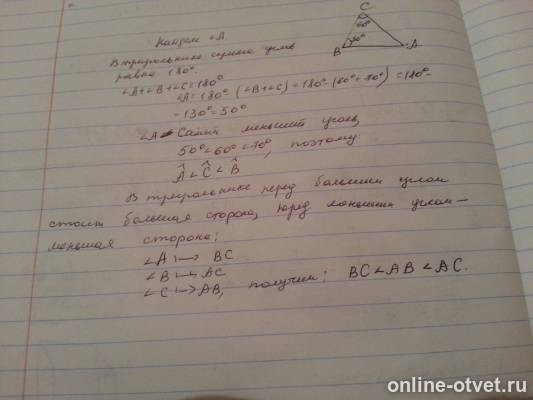 C
60°
B
70°
A
Найдем ∠A.
В треугольнике сумма углов
равна 180°.
∠A+∠B+∠C=180°
∠A=180°-(∠B+∠C)=180°-(60°+70°)=180°-
-130°=50°
∠A - Самый меньший угол,
50°<60°<70°, поэтому:
Â<Ĉ<B̂
В треугольнике перед большим углом
стоит большая сторона, перед меньшим углом-
меньшая сторона;
∠A→ BC
∠B→ AC
∠C→AB, получим; BC<AB<AC.
online-otvet.ru